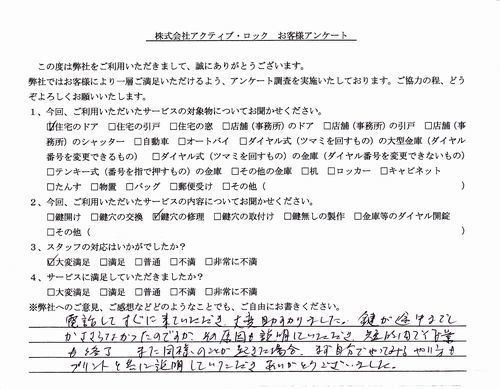 株式会社アクティブ・ロック お客様アンケート
この度は弊社をご利用いただきまして、誠にありがとうございます。
弊社ではお客様により一層ご満足いただけるよう、アンケート調査を実施いたしております。ご協力の程、どう
ぞよろしくお願いいたします。
1、今回、ご利用いただいたサービスの対象物についてお聞かせください。
☑住宅のドア □住宅の引戸 □住宅の窓 □店舗(事務所)のドア □店舗(事務所)の引戸 □店舗(事
務所)のシャッター □自動車 □オートバイ □ダイヤル式(ツマミを回すもの)の大型金庫(ダイヤル
番号を変更できるもの) □ダイヤル式(ツマミを回すもの)の金庫(ダイヤル番号を変更できないもの)
□テンキー式(番号を指で押すもの)の金庫 □その他の金庫 □机 □ロッカー □キャビネット
□たんす □物置 □バッグ □郵便受け □その他( )
2、今回、ご利用いただいたサービスの内容についてお聞かせください。
□鍵開け □鍵穴の交換 ☑鍵穴の修理 □鍵穴の取付け □鍵無しの製作 □金庫等のダイヤル開錠
□その他( )
3、スタッフの対応はいかがでしたか?
☑大変満足 □満足 □普通 □不満 □非常に不満
4、サービスに満足していただけましたか?
□大変満足 □満足 □普通 □不満 □非常に不満
※弊社へのご意見、ご感想などどのようなことでも、ご自由にお書きください。
電話してすぐに来ていただき、大変助かりました。鍵が途中までし
かささらなかったのですが、その原因も説明していただき、短時間で作業
も終了。また同様のことが起きた場合、まず自分でやってみるやり方も
プリントと共に説明していただきありがとうございました。